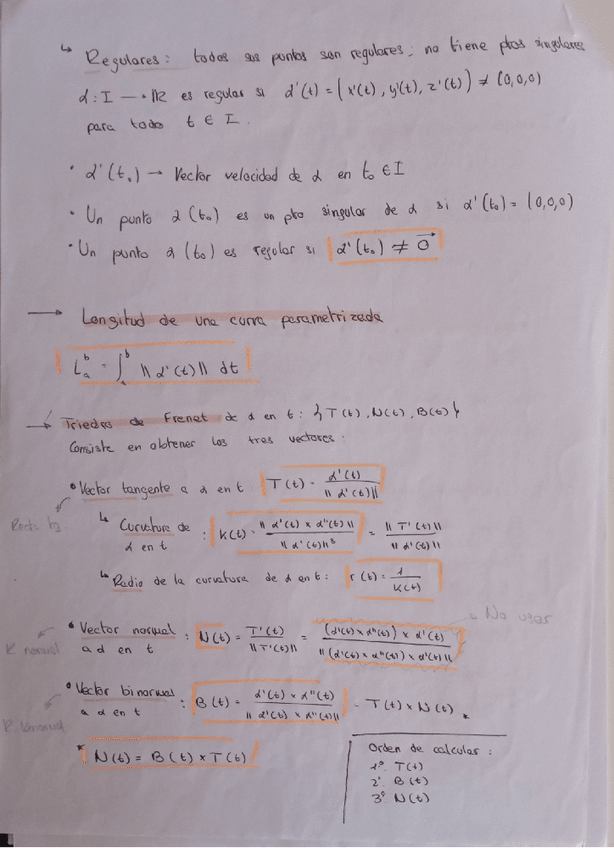 ↳ Regulares: todos sus puntos son regulares; no tiene ptos singulares
α: I → ℝ es regular si α'(t) = (x'(t), y'(t), z'(t)) ≠ (0,0,0)
para todo t ∈ I.
• α'(t₀) → Vector velocidad de α en t₀ ∈ I
• Un punto α(t₀) es un pto singular de α si α'(t₀) = (0,0,0)
• Un punto α(t₀) es regular si α'(t₀) ≠ 0⃗
→ Longitud de una curva parametrizada
L_a^b = ∫_a^b ‖α'(t)‖ dt
→ Triedro de Frenet de α en t: {T(t), N(t), B(t)}
Consiste en obtener los tres vectores:
• Vector tangente a α en t T(t) = α'(t) / ‖α'(t)‖
Recta tg
↳ Curvatura de α en t : K(t) = ‖α'(t) × α''(t)‖ / ‖α'(t)‖³ = ‖T'(t)‖ / ‖α'(t)‖
↳ Radio de la curvatura de α en t: r(t) = 1 / K(t)
→ No usar
• Vector normal a α en t : N(t) = T'(t) / ‖T'(t)‖ = (α'(t) × α''(t)) × α'(t) / ‖(α'(t) × α''(t)) × α'(t)‖
R normal
• Vector binormal a α en t : B(t) = α'(t) × α''(t) / ‖α'(t) × α''(t)‖ = T(t) × N(t) *
R. binormal
* N(t) = B(t) × T(t)
Orden de calcular :
1º. T(t)
2º. B(t)
3º. N(t)